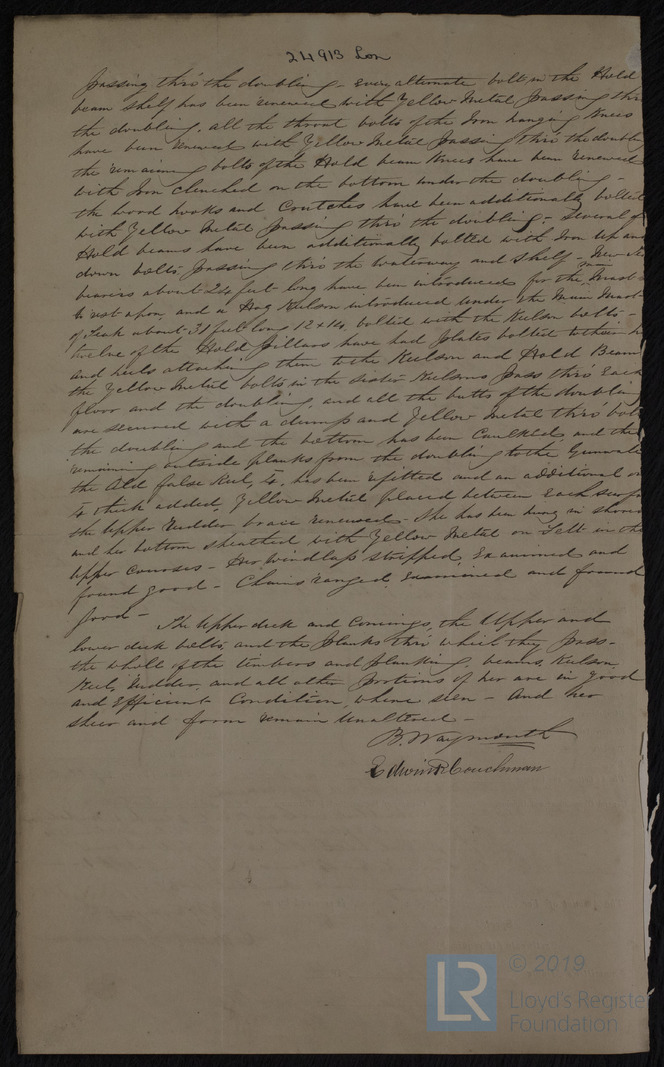 24913 Lon
passing thro' the doubling - every alternate bolt in the Hold
beam shelf has been renewed with Yellow Metal passing thro
the doubling. all the throat bolts of the Iron hanging Knees
have been renewed with Yellow Metal passing thro' the doubling
the remaining bolts of the Hold beam Knees have been renewed
with Iron clenched on the bottom under the doubling -
the wood hooks and Crutches have been additionally bolted
with Yellow Metal passing thro' the doubling - Several of
Hold beams have been additionally bolted with Iron up and
down bolts passing thro' the waterway and shelf - New
bearers about 24 feet long have been introduced for the main Mast
to rest upon, and a Hog Kelson introduced under the Main Mast
of Teak about 31 feet long 12 x 14, bolted with the Keelson bolts -
twelve of the Hold Pillars have had plates bolted to their h
and heels attaching them to the Keelson and Hold Beam
the Yellow Metal bolts in the sister Keelsons pass thro' Each
floor and the doubling, and all the butts of the doubling
are secured with a dump and Yellow Metal thro' bolt
the doubling and the bottom has been Caulked, and the
remaining outside planks from the doubling to the Gunwale
the Old false Keel, has been refitted and an additional on
4 thick added, Yellow Metal placed between Each surfa
the Upper Rudder brace renewed. She has been hung in shores
and her bottom sheathed with Yellow Metal on Felt in the
Upper courses - Her windlass stripped, Examined and
found good - Chains ranged, examined and found
good -
The Upper deck and Comings, the Upper and
lower deck bolts, and the planks thro' which they pass -
the whole of the timbers and planking, beams, Keelson
Keel, Rudder, and all other portions of her are in good
and Efficient Condition, where seen - And her
sheer and form remain Unaltered -
B. Waymouth
Edwin R Couchman
LR
© 2019
Lloyd's Register
Foundation